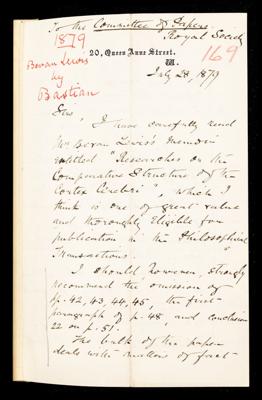 To the Committee of Papers
Royal Society
1879
169
20, Queen Anne Street,
W.
Bevan Lewis
by
Bastian
July 28, 1879
Sirs,
I have carefully read
Mr Bevan Lewis's Memoir
entitled "Researches on the
Comparative Structure of the
Cortex Cerebri", which I
think is one of great value
and thoroughly eligible for
publication in the Philosophical
Transactions.
I should however, strongly
recommend the omission of
pp. 42, 43, 44, 45, the first
paragraph of p. 48, and conclusion
22 on p. 51.
The bulk of the paper
deals with matters of fact